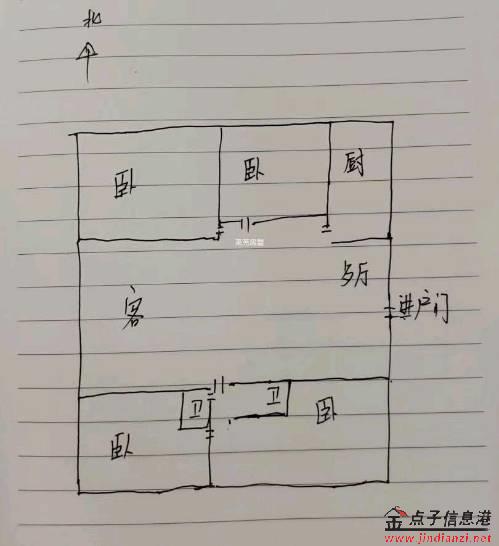 北
卧
卧
厨
莱芜房屋
客
乡厅
进户门
卫
卫
卧
卧
金点子信息港
www.jindianzi.net